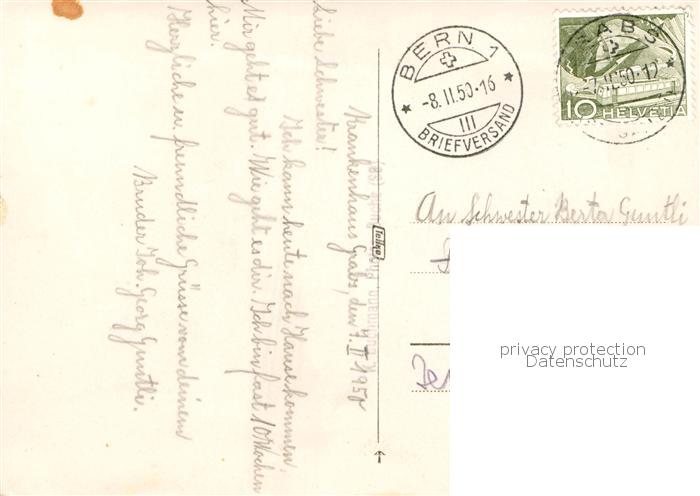 Krankenhaus Grabs, den 7. II 1950
Liebe Schwester!
Ich kann heute nach Hause kommen
Mir geht es gut. Wie geht es dir. Ich bin fast 10 Wochen
hier.
Herzliche u. freundliche Grüsse von deinem
Bruder Joh. Georg Guntli.
BERN 1
-8.II.50-16
III
BRIEFVERSAND
RABS
II.50-12
10 HELVETIA
An Schwester Berta Guntli
privacy protection
Datenschutz